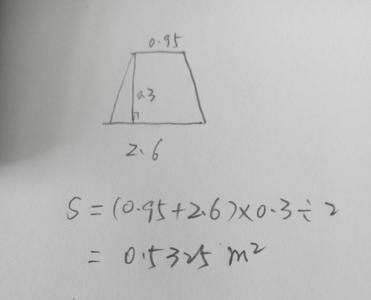 0.95
0.3
2.6
S = (0.95+2.6)×0.3÷2
= 0.5325 m²